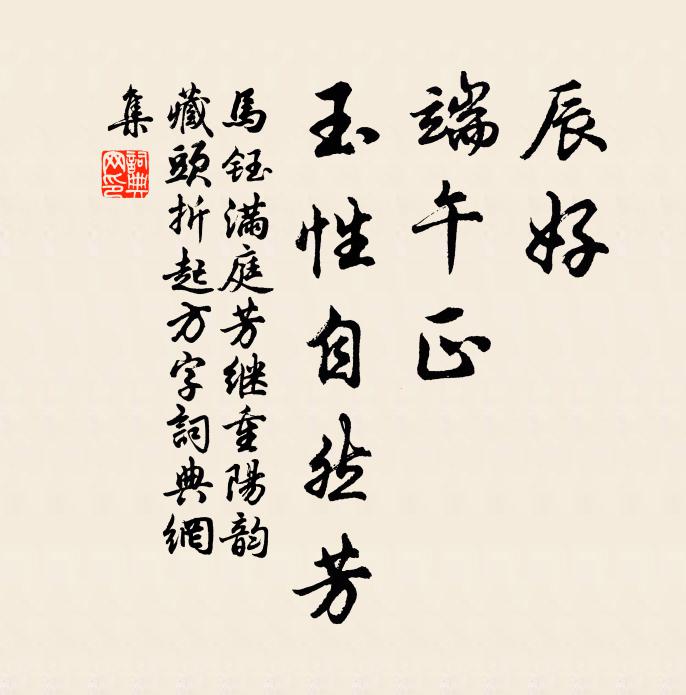 辰好
端午正
玉性自然芳
馬鈺滿庭芳继重陽韵
藏頭折起方字詞典網
集
詞典网印